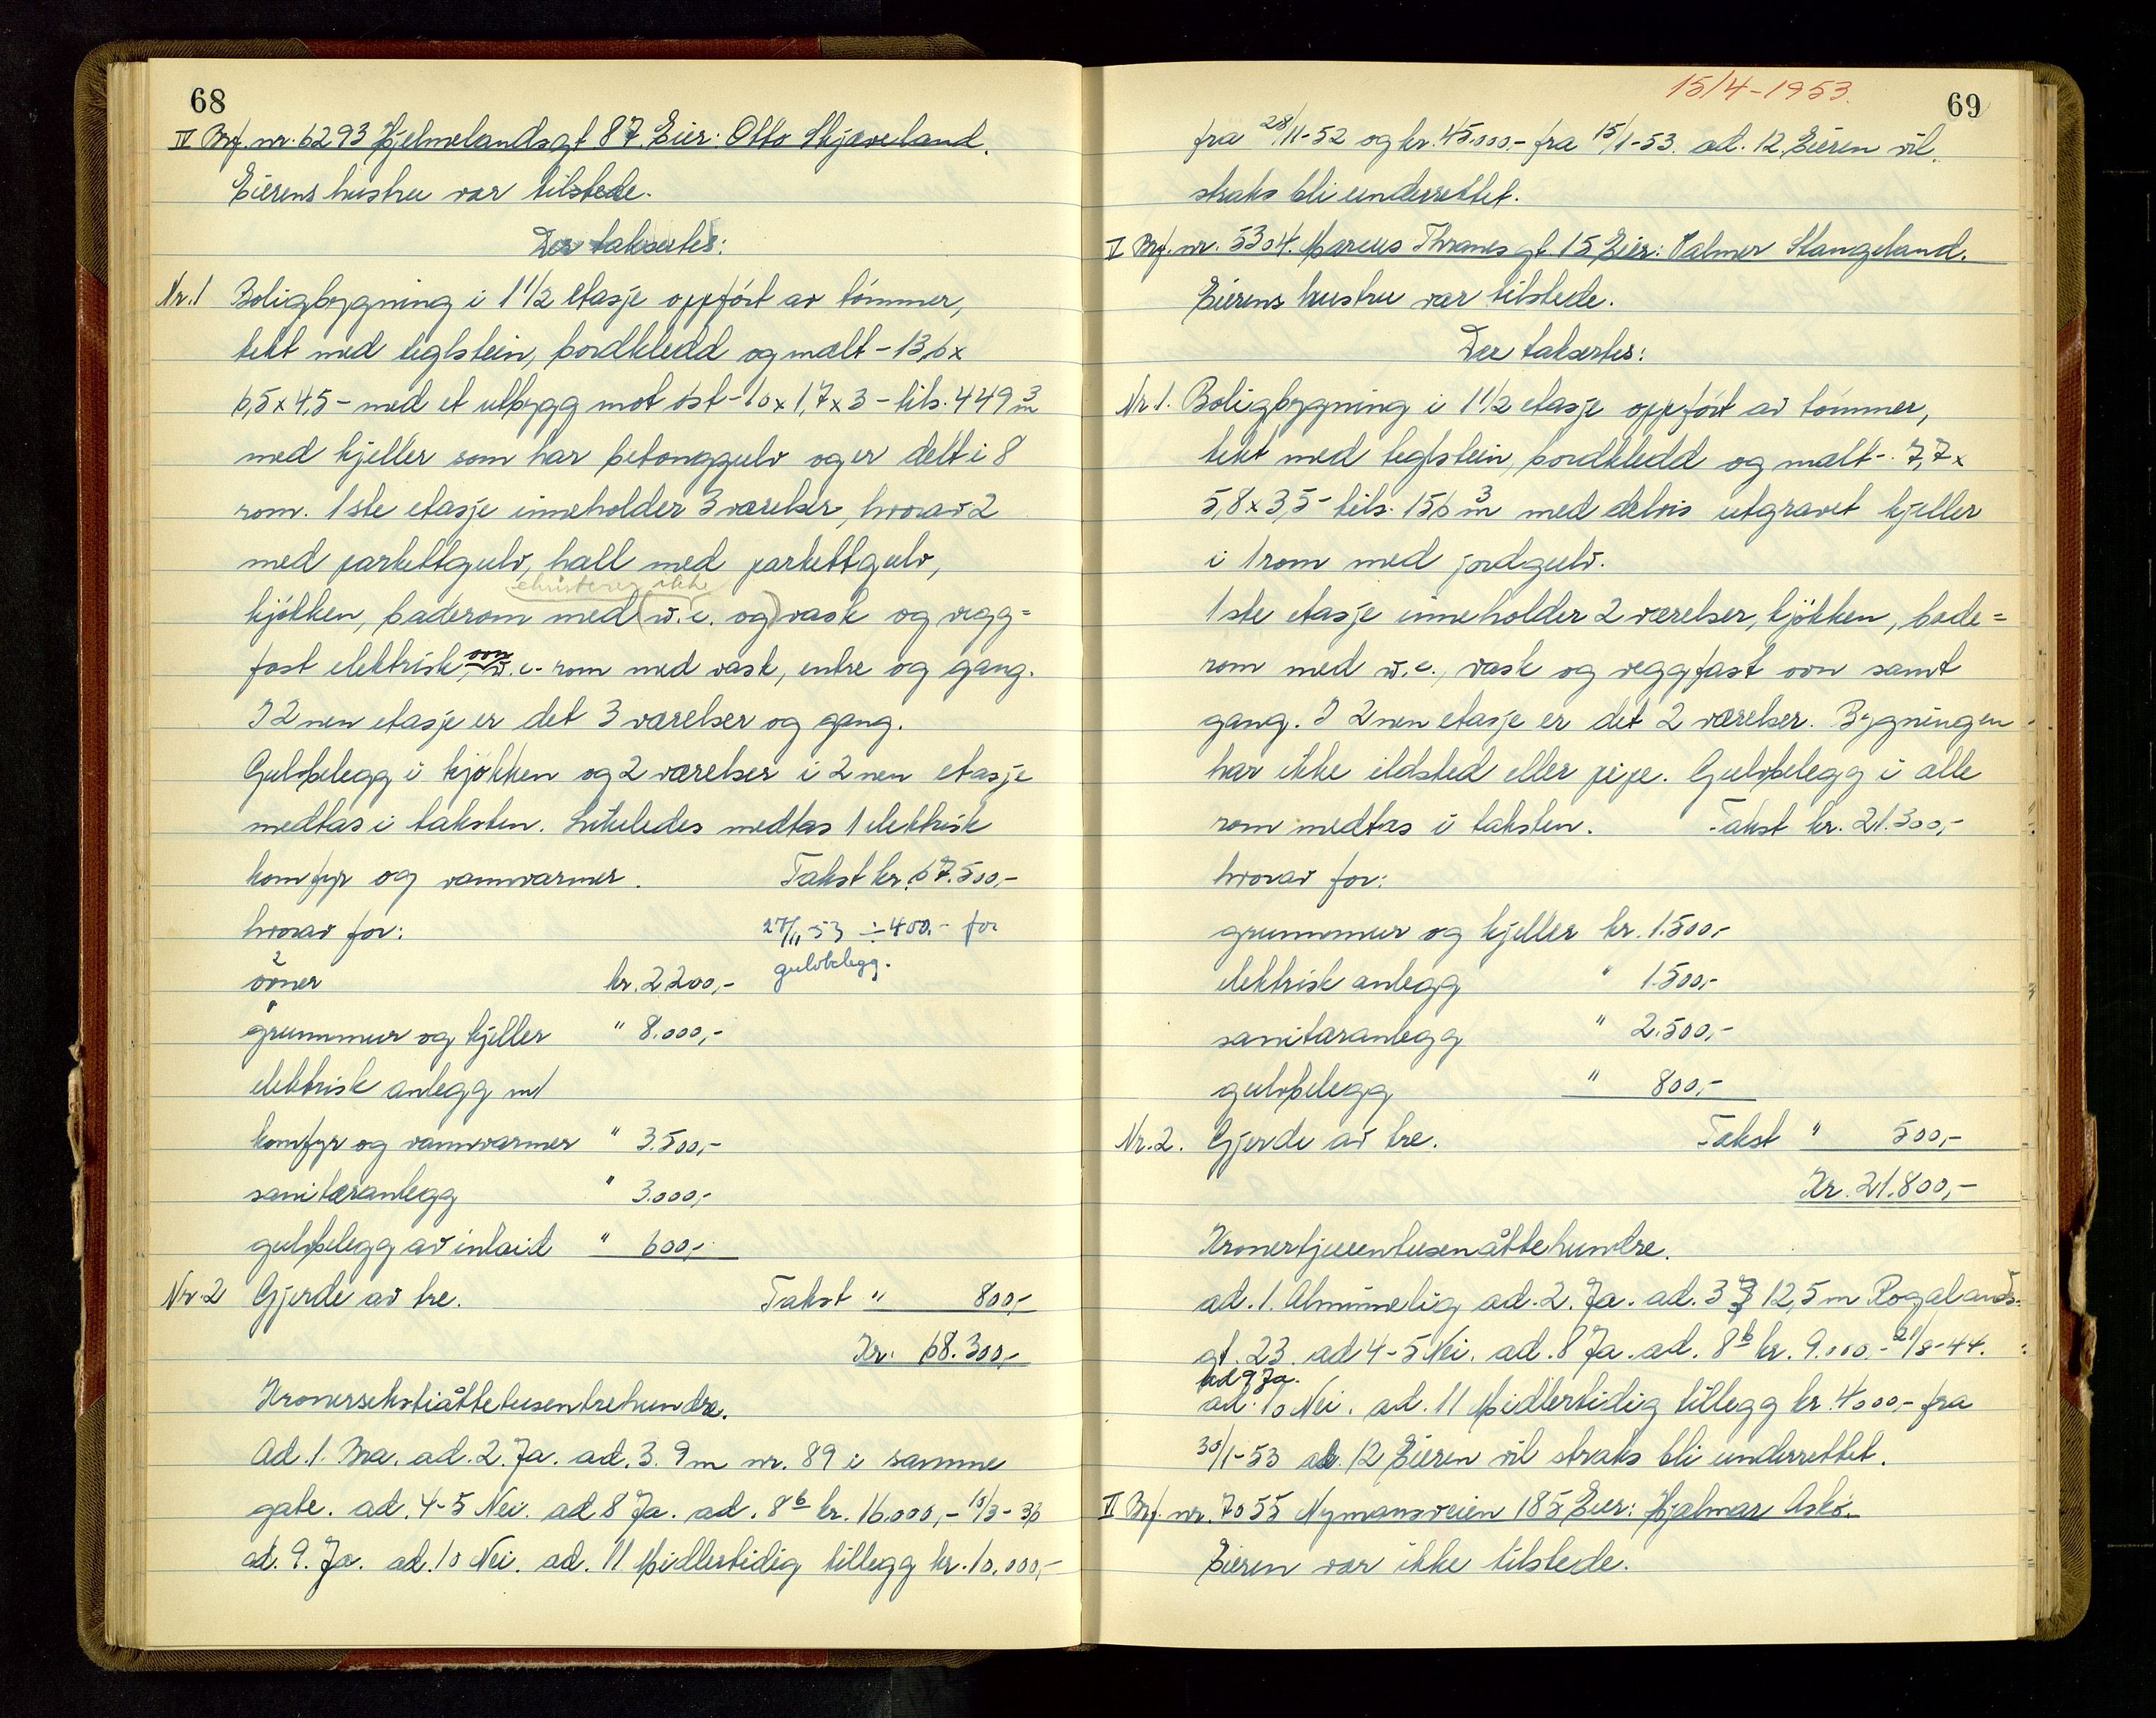 68
IV Brf. nr. 6293 Hjelmelandsgt 87. Eier: Otto Skjæveland.
Eierens hustru var tilstede.
Der taksertes:
Nr. 1 Boligbygning i 1 1/2 etasje oppfört av tömmer,
tekt med teglstein, bordkledd og malt - 13,6 x
6,5 x 4,5 - med et utbygg mot öst - 10 x 1,7 x 3 - tils. 449 m3
med kjeller som har betonggulv og er delt i 8
rom. 1ste etasje inneholder 3 værelser, hvorav 2
med parkettgulv, hall med parkettgulv,
eksisterer ikke
kjökken, baderom med (w.c. og) vask og vegg=
fast elektrisk ovn, w.c. rom med vask, entre og gang.
I 2nen etasje er det 3 værelser og gang.
Gulvbelegg i kjökken og 2 værelser i 2nen etasje
medtas i taksten. Likeledes medtas 1 elektrisk
komfyr og vannvarmer. Takst kr. 67.500,-
hvorav for: 27/11-53 ÷ 400.- for
gulvbelegg.
2 ovner kr. 2200,-
grunnmur og kjeller " 8.000,-
elektrisk anlegg m/
komfyr og vannvarmer " 3.500,-
sanitæranlegg " 3.000,-
gulvbelegg av inlaid " 600,-
Nr. 2 Gjerde av tre. Takst " 800,-
Kr. 68.300,-
Kronersekstiåttetusentrehundre.
Ad. 1. Bra. ad. 2. Ja. ad. 3. 9 m nr. 89 i samme
gate. ad. 4-5 Nei. ad 8 Ja. ad. 8b kr. 16.000,- 10/3-36
ad. 9. Ja. ad. 10 Nei. ad. 11 Midlertidig tillegg kr. 10.000,-
15/4-1953.
69
fra 28/11-52 og kr. 45.000.- fra 15/1-53. ad. 12. Eieren vil
straks bli underrettet.
V Brf. nr. 5304. Marcus Thranes gt. 15 Eier: Valmer Stangeland.
Eierens hustru var tilstede.
Der taksertes:
Nr. 1. Boligbygning i 1 1/2 etasje oppfört av tömmer,
tekt med teglstein, bordkledd og malt - 7,7 x
5,8 x 3,5 - tils. 156 m3 med delvis utgravet kjeller
i 1 rom med jordgulv.
1ste etasje inneholder 2 værelser, kjökken, bade=
rom med w.c., vask og veggfast ovn samt
gang. I 2nen etasje er det 2 værelser. Bygningen
har ikke ildsted eller pipe. Gulvbelegg i alle
rom medtas i taksten. Takst kr. 21.300,-
hvorav for:
grunnmur og kjeller kr. 1.500,-
elektrisk anlegg " 1.500,-
sanitæranlegg " 2.500,-
gulvbelegg " 800,-
Nr. 2. Gjerde av tre. Takst " 500,-
Kr. 21.800,-
Kronertjueentusenåttehundre.
ad. 1. Alminnelig ad. 2. Ja. ad. 3 12,5 m Rogalands-
gt. 23. ad 4-5 Nei. ad. 8 Ja. ad. 8b kr. 9.000.- 21/8-44.
ad 9 Ja.
ad. 10 Nei. ad. 11 Midlertidig tillegg kr. 4000,- fra
30/1-53 ad. 12 Eieren vil straks bli underrettet.
VI Brf. nr. 7055 Nymansveien 185 Eier: Hjalmar Askö.
Eieren var ikke tilstede.